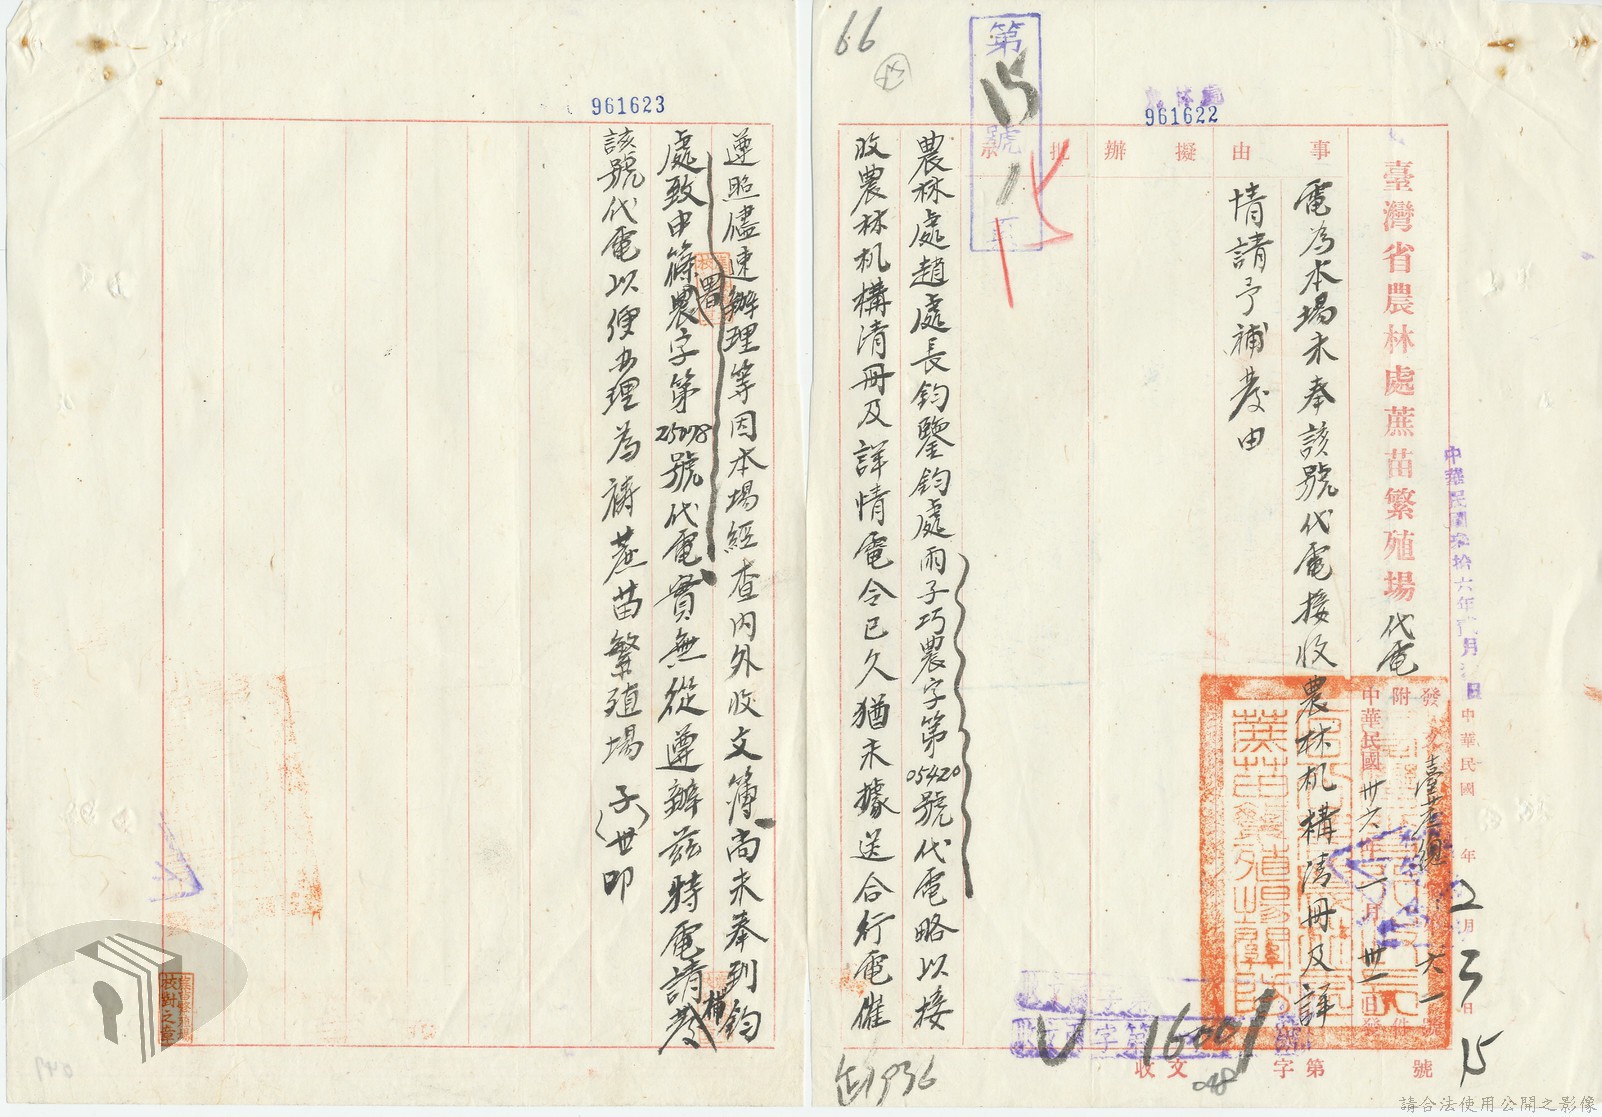 66
第15號1頁
961622
臺灣省農林處蔗苗繁殖場代電
事由
擬辦
批示
電為本場未奉該號代電接收農林机構清冊及詳
情請予補發由
中華民國卅六年一月卅一日發
中華民國 年2月3日
農林處趙處長鈞鑒鈞處雨子巧農字第05420號代電略以接
收農林机構清冊及詳情電令已久猶未據送合行電催
收文 字第 16001 號
15
048
1936
961623
遵照儘速辦理等因本場經查內外收文簿尚未奉到鈞
處致申篠署農字第25078號代電實無從遵辦茲特電請補發
該號代電以便办理為禱蔗苗繁殖場子世叩
校對之章
請合法使用公開之影像